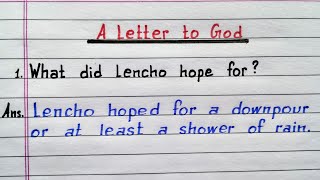 A Letter to God
1. What did Lencho hope for?
Ans. Lencho hoped for a downpour
or at least a shower of rain.